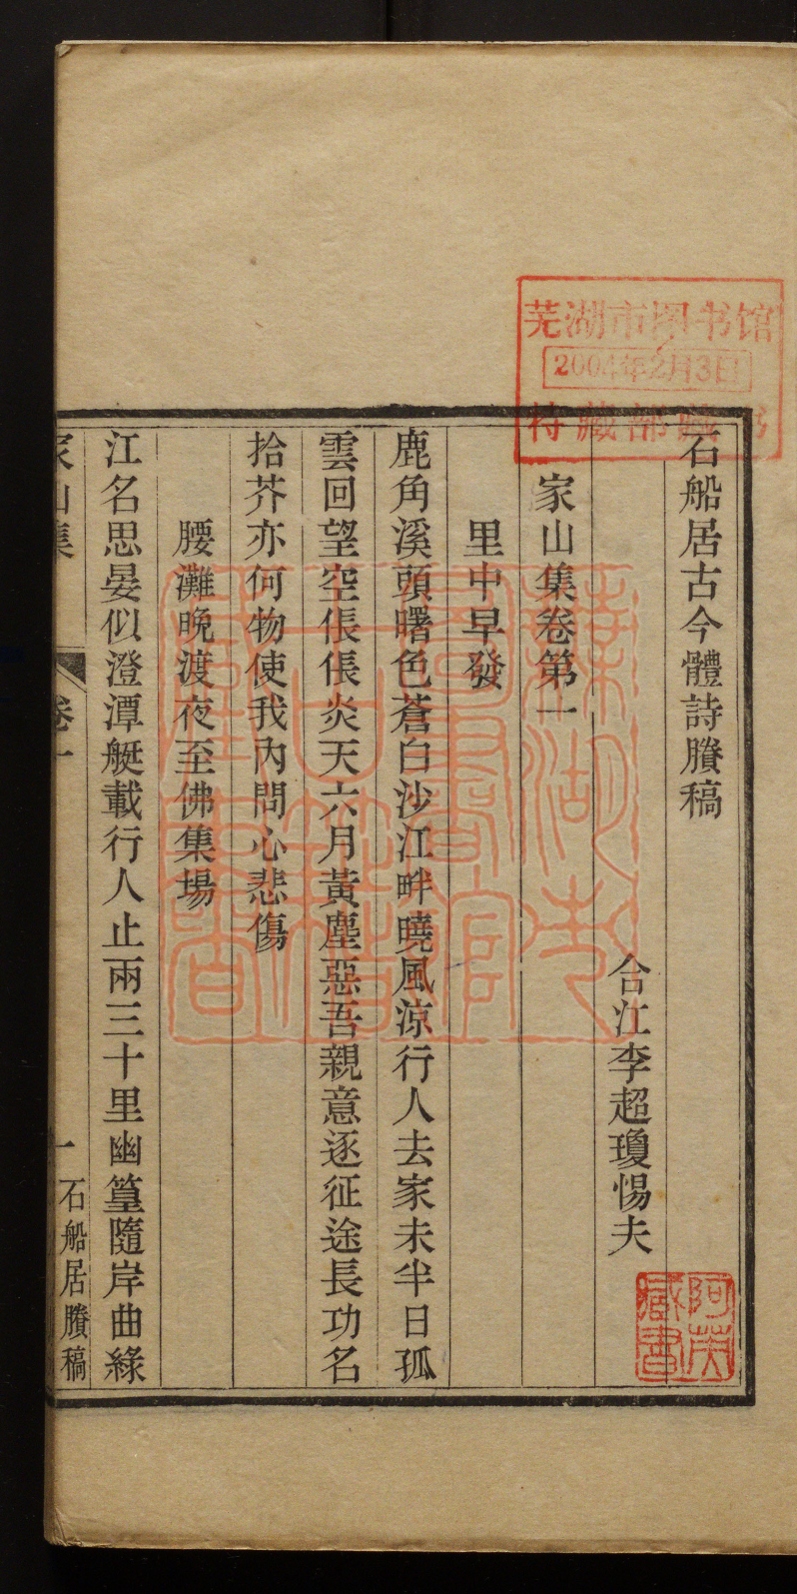 石船居古今體詩賸稿
合江李超瓊惕夫
家山集卷第一
里中早發
鹿角溪頭曙色蒼白沙江畔曉風涼行人去家未半日孤
雲回望空倀倀炎天六月黃塵惡吾親意逐征途長功名
拾芥亦何物使我內問心悲傷
腰灘晚渡夜至佛集場
江名思晏似澄潭艇載行人止兩三十里幽篁隨岸曲綠
家山集
卷一
一
石船居賸稿
芜湖市图书馆
2004年2月3日
特藏部藏书
蕪湖市圖書館古籍藏書